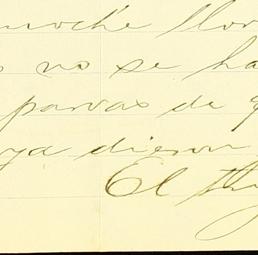 noche llov
no se ha
parvas de
ya dieron
El